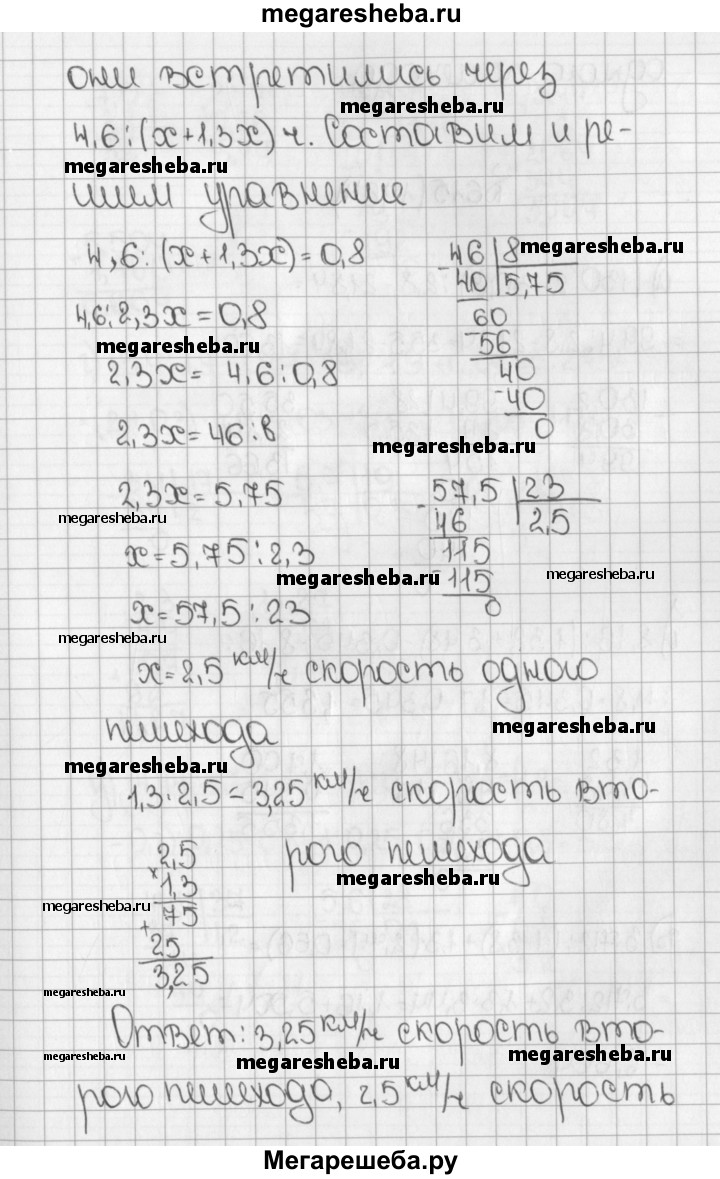 megaresheba.ru
они встретились через
megaresheba.ru
4,6:(x+1,3x) ч. Составим и ре-
megaresheba.ru
шим уравнение
4,6:(x+1,3x)=0,8
46 | 8
megaresheba.ru
- 40 | 5,75
4,6:2,3x=0,8
60
megaresheba.ru
- 56
2,3x= 4,6:0,8
40
- 40
2,3x=46:8
0
megaresheba.ru
2,3x=5,75
- 57,5 | 23
megaresheba.ru
46 | 2,5
x=5,75:2,3
115
megaresheba.ru
megaresheba.ru
- 115
x=57,5:23
0
megaresheba.ru
x=2,5 км/ч скорость одного
пешехода
megaresheba.ru
megaresheba.ru
1,3·2,5=3,25 км/ч скорость вто-
рого пешехода
2,5
× 1,3
megaresheba.ru
megaresheba.ru
75
+ 25
3,25
megaresheba.ru
Ответ: 3,25 км/ч скорость вто-
megaresheba.ru
megaresheba.ru
megaresheba.ru
рого пешехода, 2,5 км/ч скорость
Мегарешеба.ру